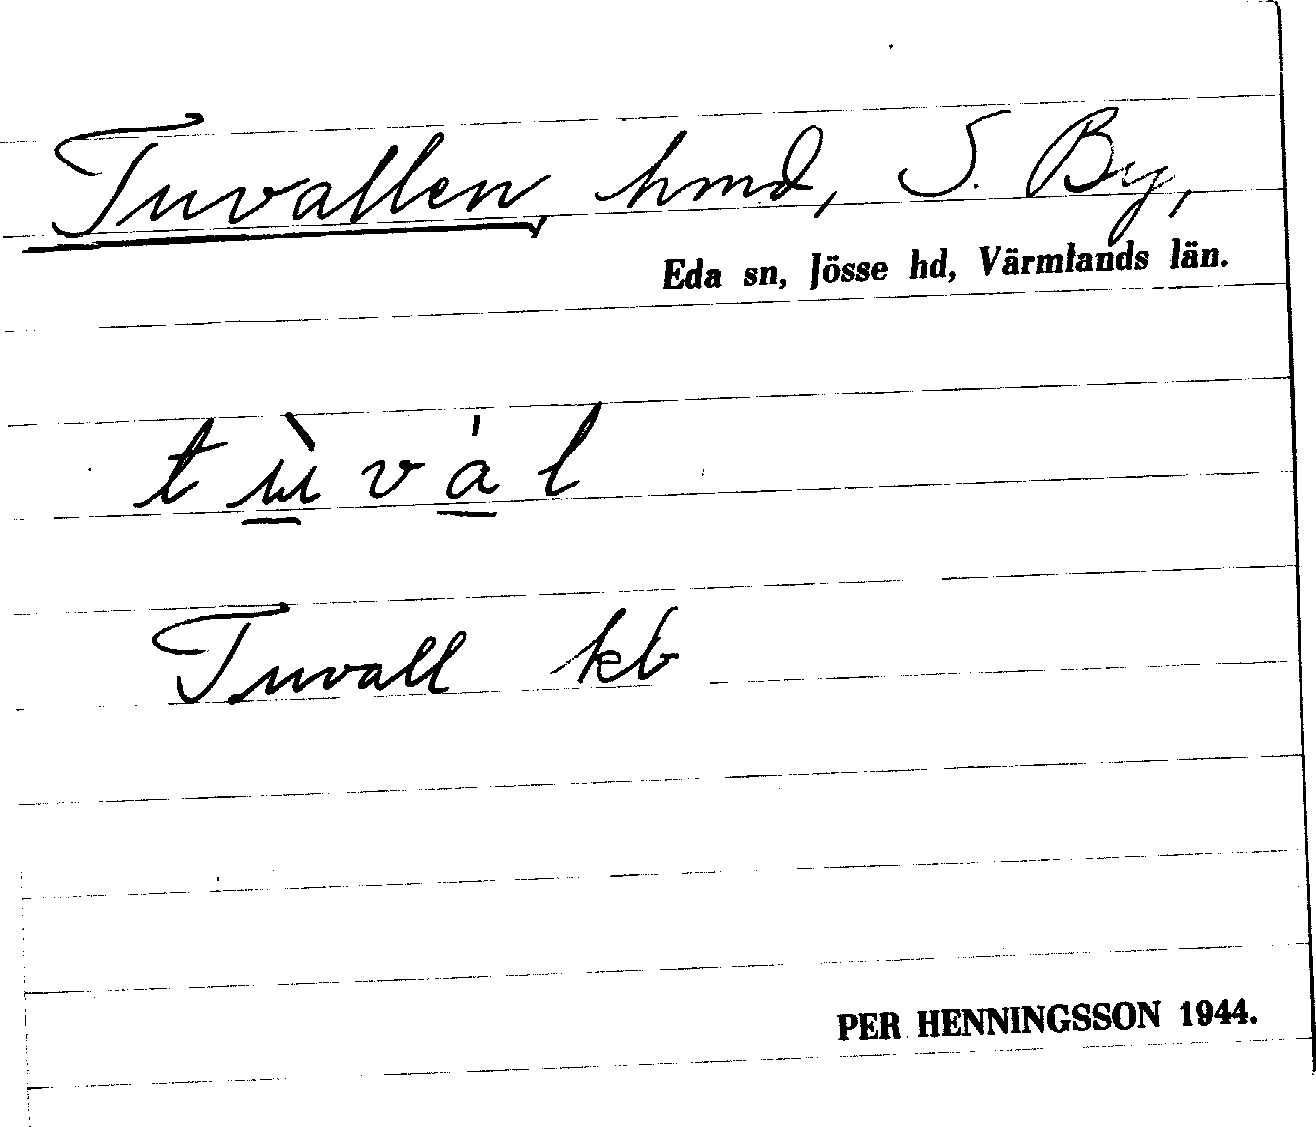 Tuvallen, hmd, S. By,
Eda sn, Jösse hd, Värmlands län.
tù̲vá̲l
Tuvall kb
PER HENNINGSSON 1944.